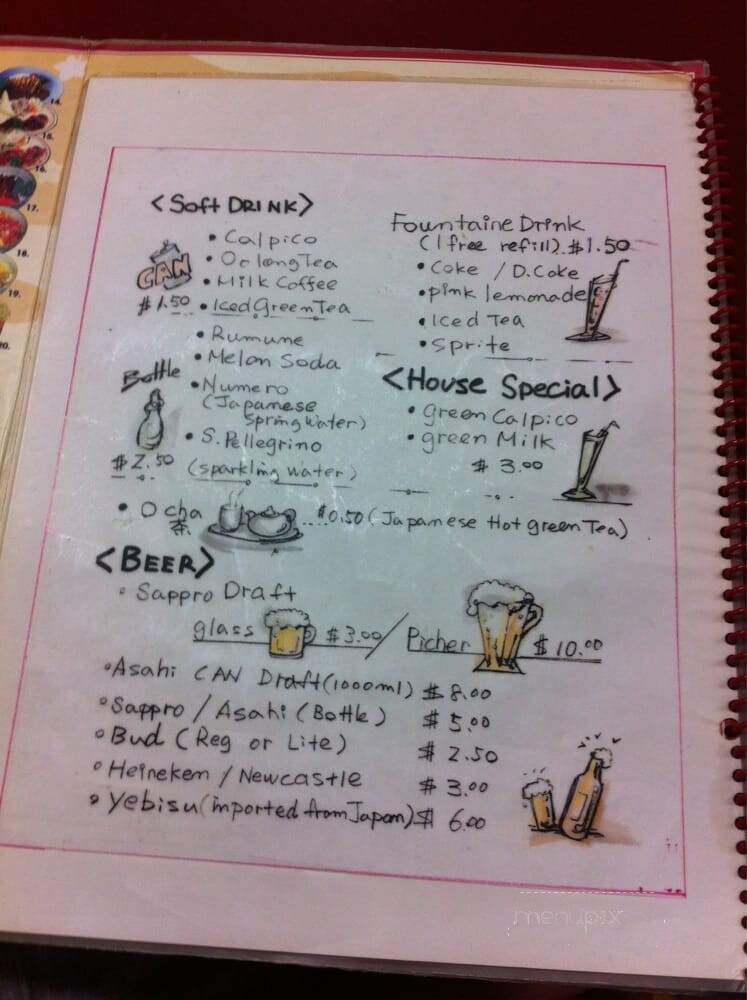 <Soft DRINK>
• Calpico
• Oolong Tea
• Milk Coffee
• Iced Green Tea
CAN
$1.50
• Rumune
• Melon Soda
• Numero
(Japanese
Spring Water)
• S. Pellegrino
(sparkling water)
Bottle
$2.50
• Ocha
茶
$0.50 (Japanese Hot green Tea)
Fountaine Drink
(1 free refill) $1.50
• Coke / D.Coke
• pink lemonade
• Iced Tea
• Sprite
<House Special>
• green Calpico
• green Milk
$3.00
<BEER>
• Sappro Draft
glass $3.00 / Picher $10.00
• Asahi CAN Draft (1000ml) $8.00
• Sappro / Asahi (Bottle) $5.00
• Bud (Reg or Lite) $2.50
• Heineken / Newcastle $3.00
• Yebisu (imported from Japan) $6.00
14.
15.
16.
17.
18.
19.
20.
menupix